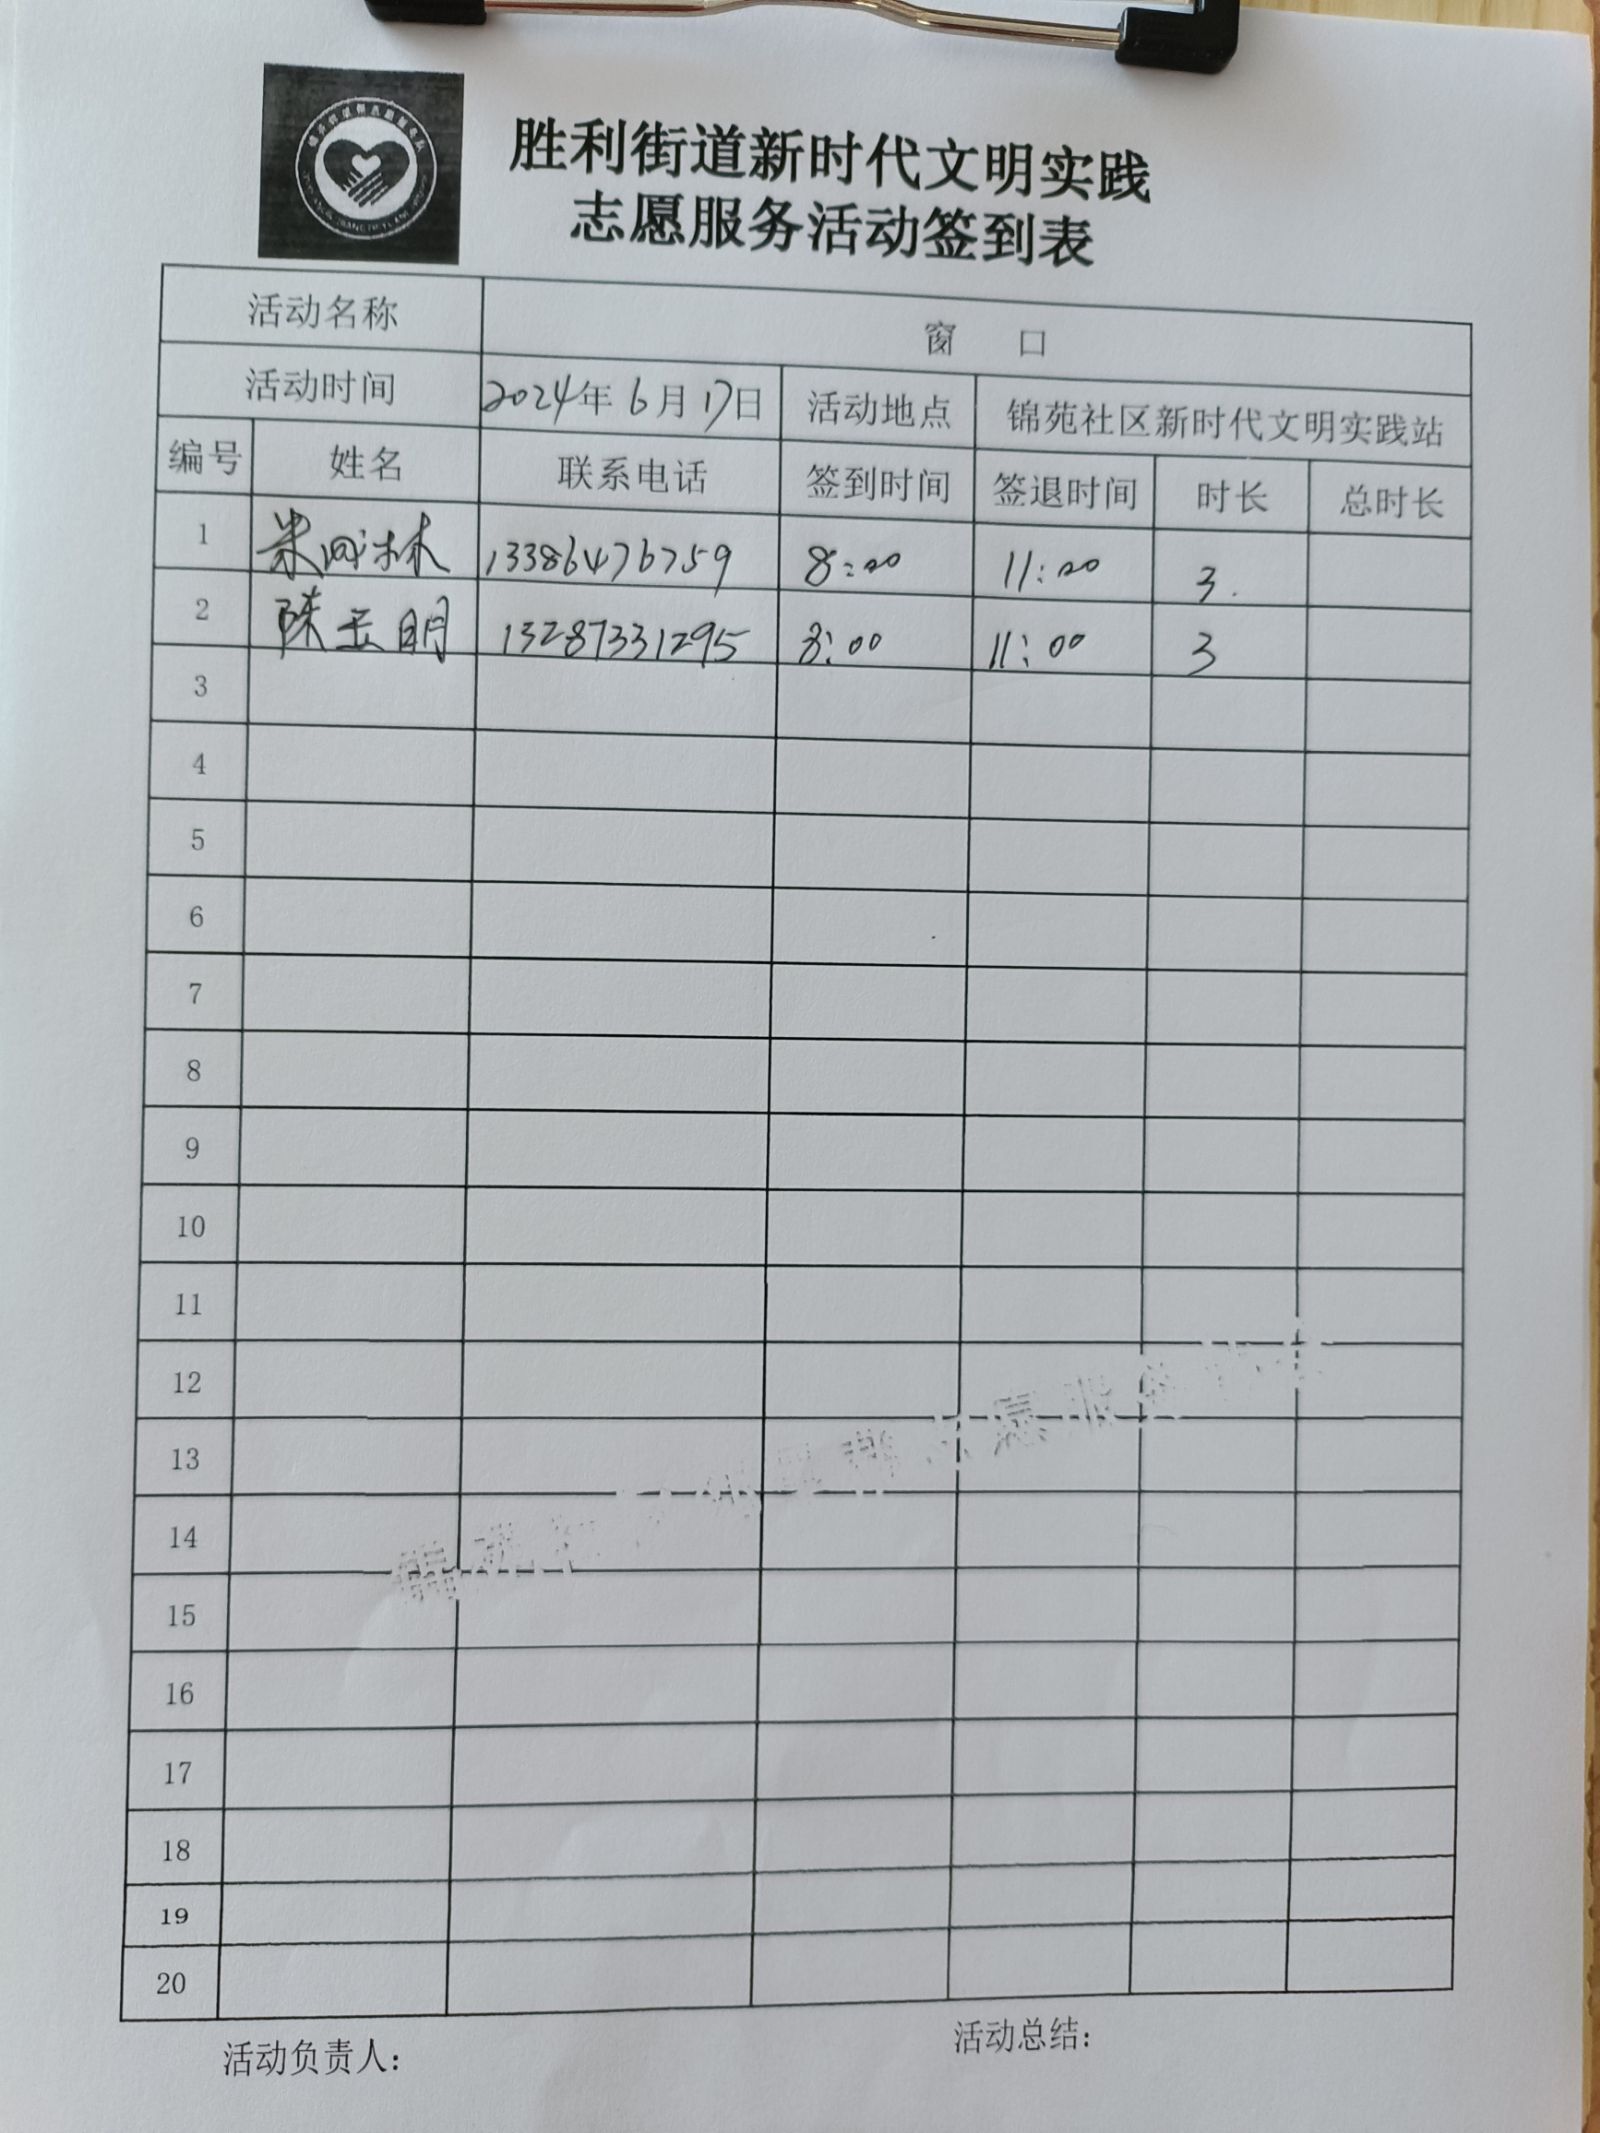 胜利街道新时代文明实践
志愿服务活动签到表
活动名称 窗 口
活动时间 2024年6月17日 活动地点 锦苑社区新时代文明实践站
编号 姓名 联系电话 签到时间 签退时间 时长 总时长
1 林 13386476759 8:00 11:00 3.
2 陈玉明 13287331295 8:00 11:00 3
3
4
5
6
7
8
9
10
11
12
13
14
15
16
17
18
19
20
活动负责人: 活动总结: